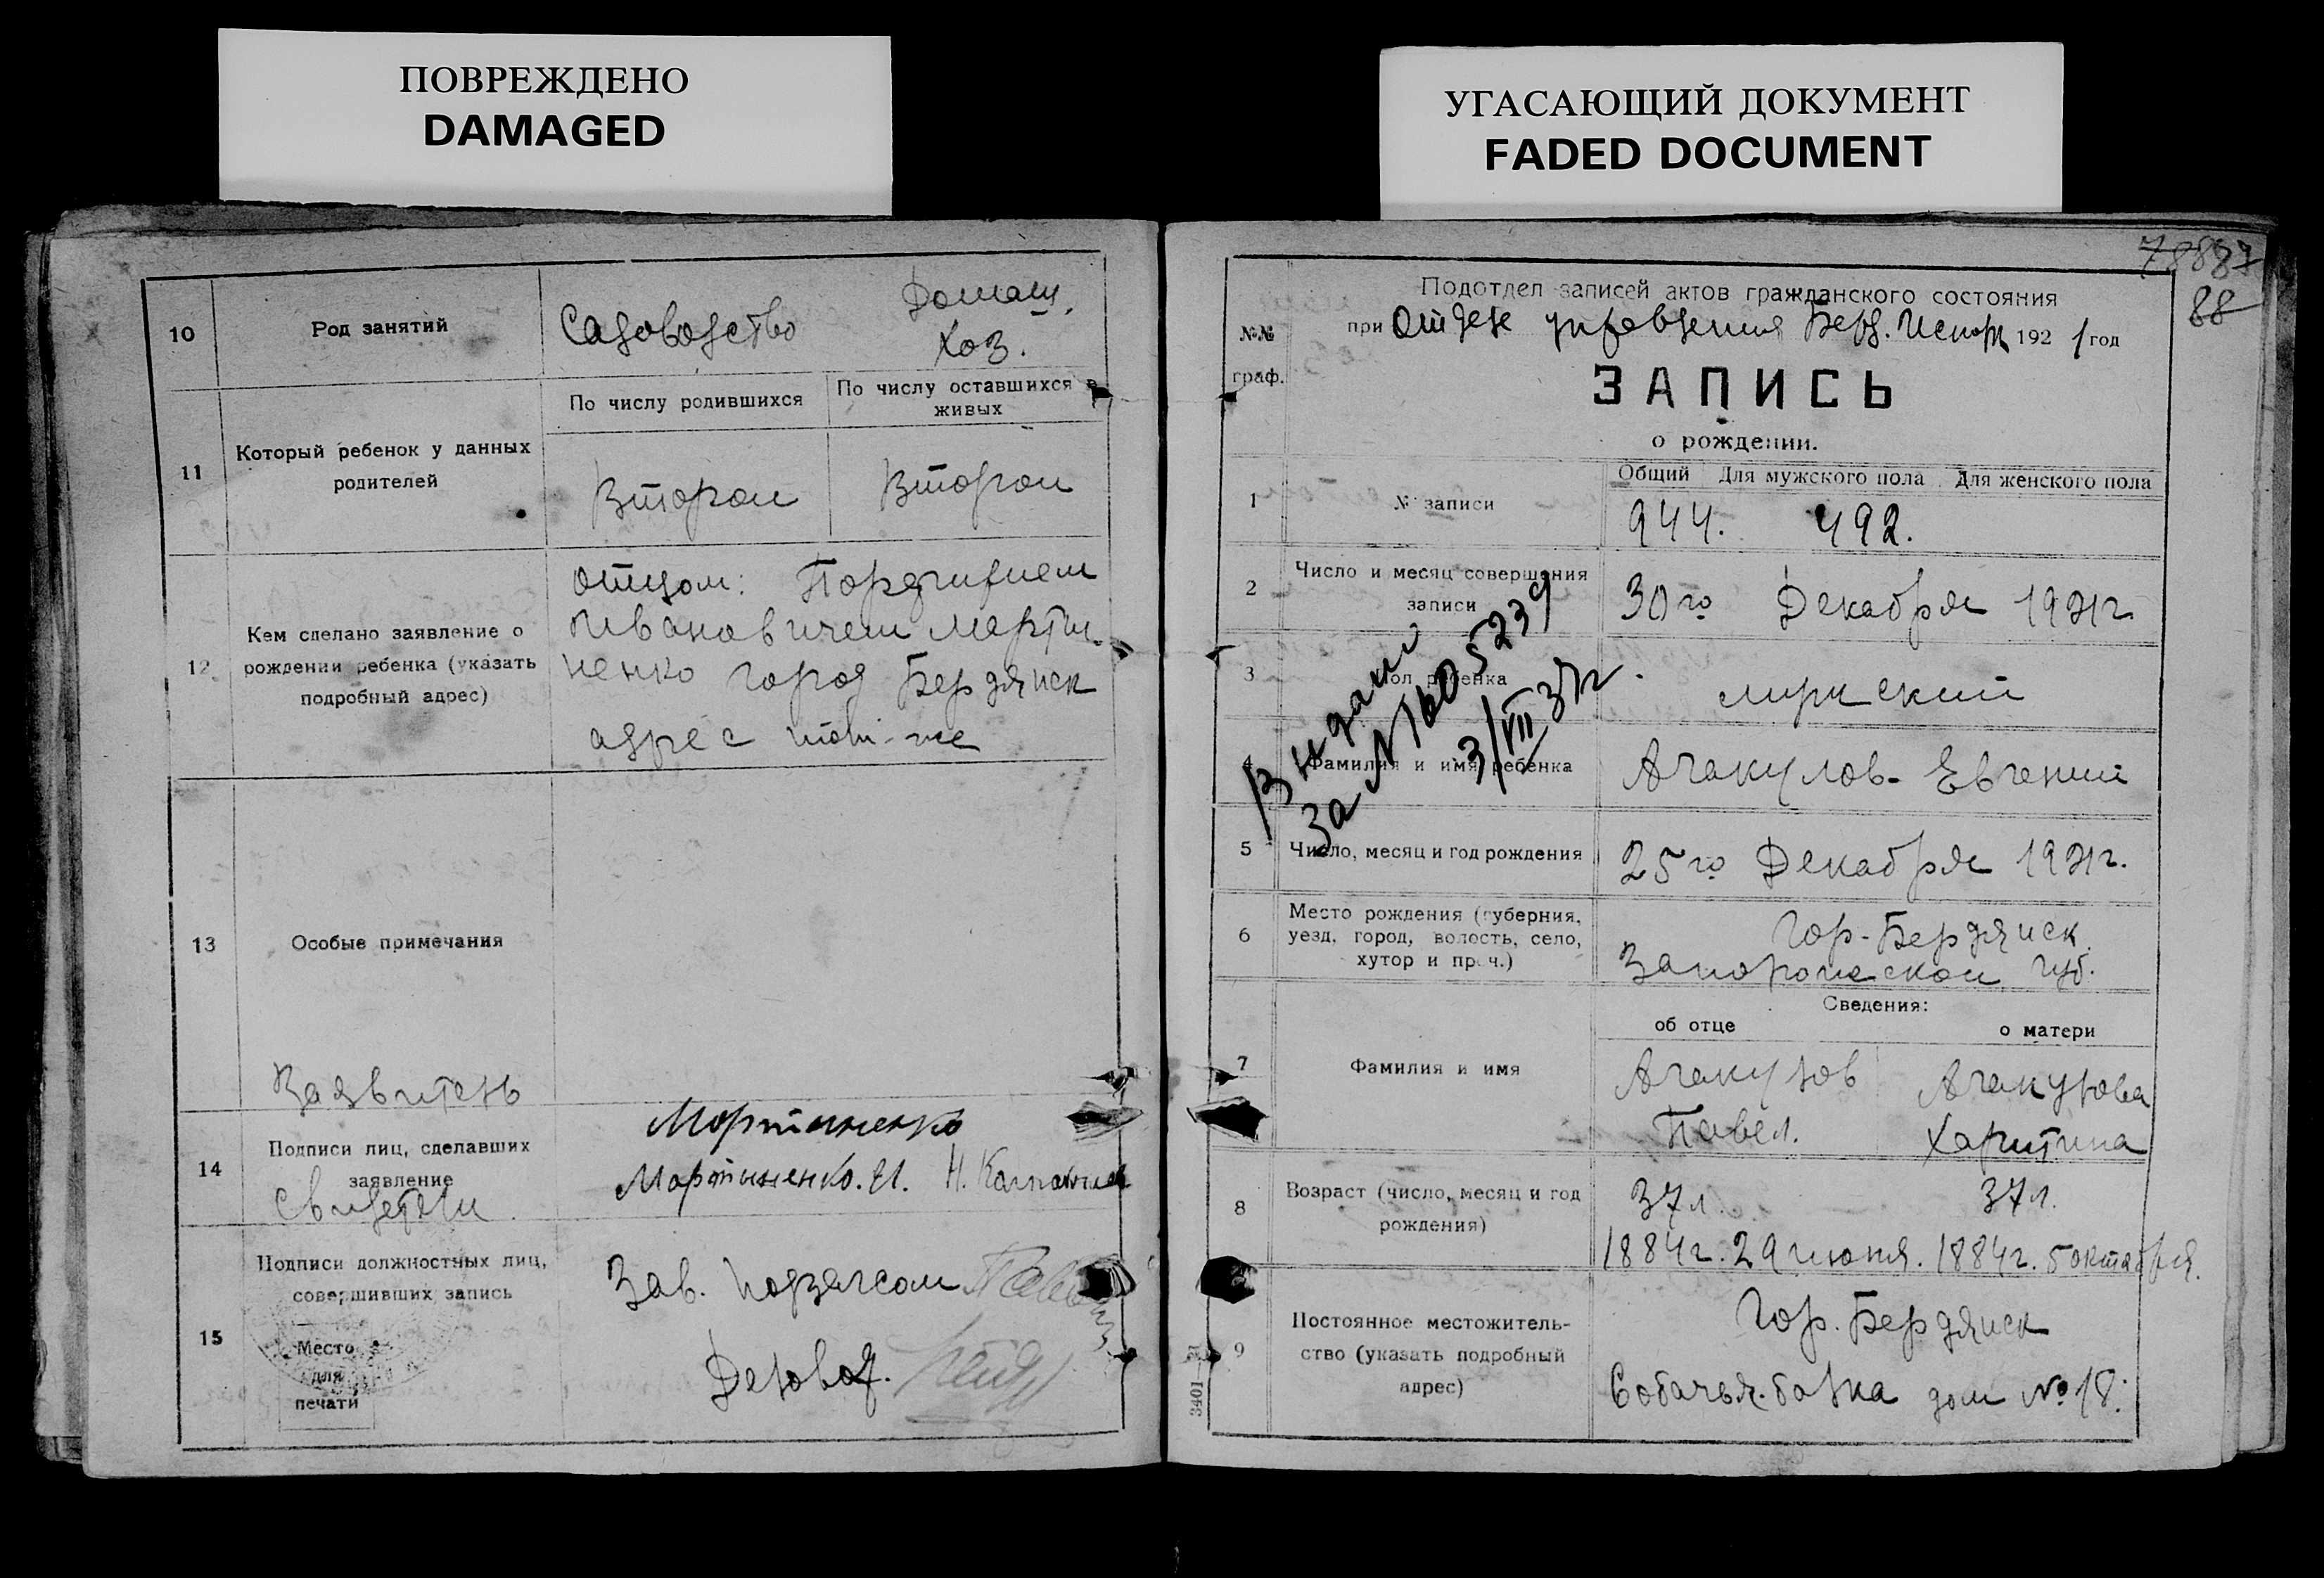 ПОВРЕЖДЕНО
DAMAGED
УГАСАЮЩИЙ ДОКУМЕНТ
FADED DOCUMENT
10
Род занятий
Садоводство
Домашн.
Хоз.
11
Который ребенок у данных
родителей
По числу родившихся
По числу оставшихся в
живых
Второй
Второй
12
Кем сделано заявление о
рождении ребенка (указать
подробный адрес)
отцом:
Ивановичем Марты-
ненко город Бердянск
адрес тот-же
13
Особые примечания
Заявитель
14
Подписи лиц, сделавших
заявление
Свидетели
Мартыненко
Мартыненко. И. Н.
15
Подписи должностных лиц,
совершивших запись
Место
для
печати
Зав. подзагсом
Деловод.
88
Подотдел записей актов гражданского состояния
при Отделе управления Берд. Исполк 1921 год
№№
граф.
ЗАПИСЬ
о рождении.
1
№ записи
Общий Для мужского пола Для женского пола
944. 492.
2
Число и месяц совершения
записи
30го Декабря 1921г.
3
Пол ребенка
мужский
4
Фамилия и имя ребенка
Агакулов-Евгений
Выдан
За № ЫО 5239
3/VII 37г.
5
Число, месяц и год рождения
25го Декабря 1921г.
6
Место рождения (губерния,
уезд, город, волость, село,
хутор и проч.)
Гор-Бердянск
Запорожской Губ.
Сведения:
об отце
о матери
7
Фамилия и имя
Агакулов
Павел.
Агакулова
Харитина
8
Возраст (число, месяц и год
рождения)
37л. 37л.
1884г. 29 июня. 1884г. 5 октября.
9
Постоянное местожитель-
ство (указать подробный
адрес)
Гор. Бердянск
Собачья-балка дом № 18.
3401